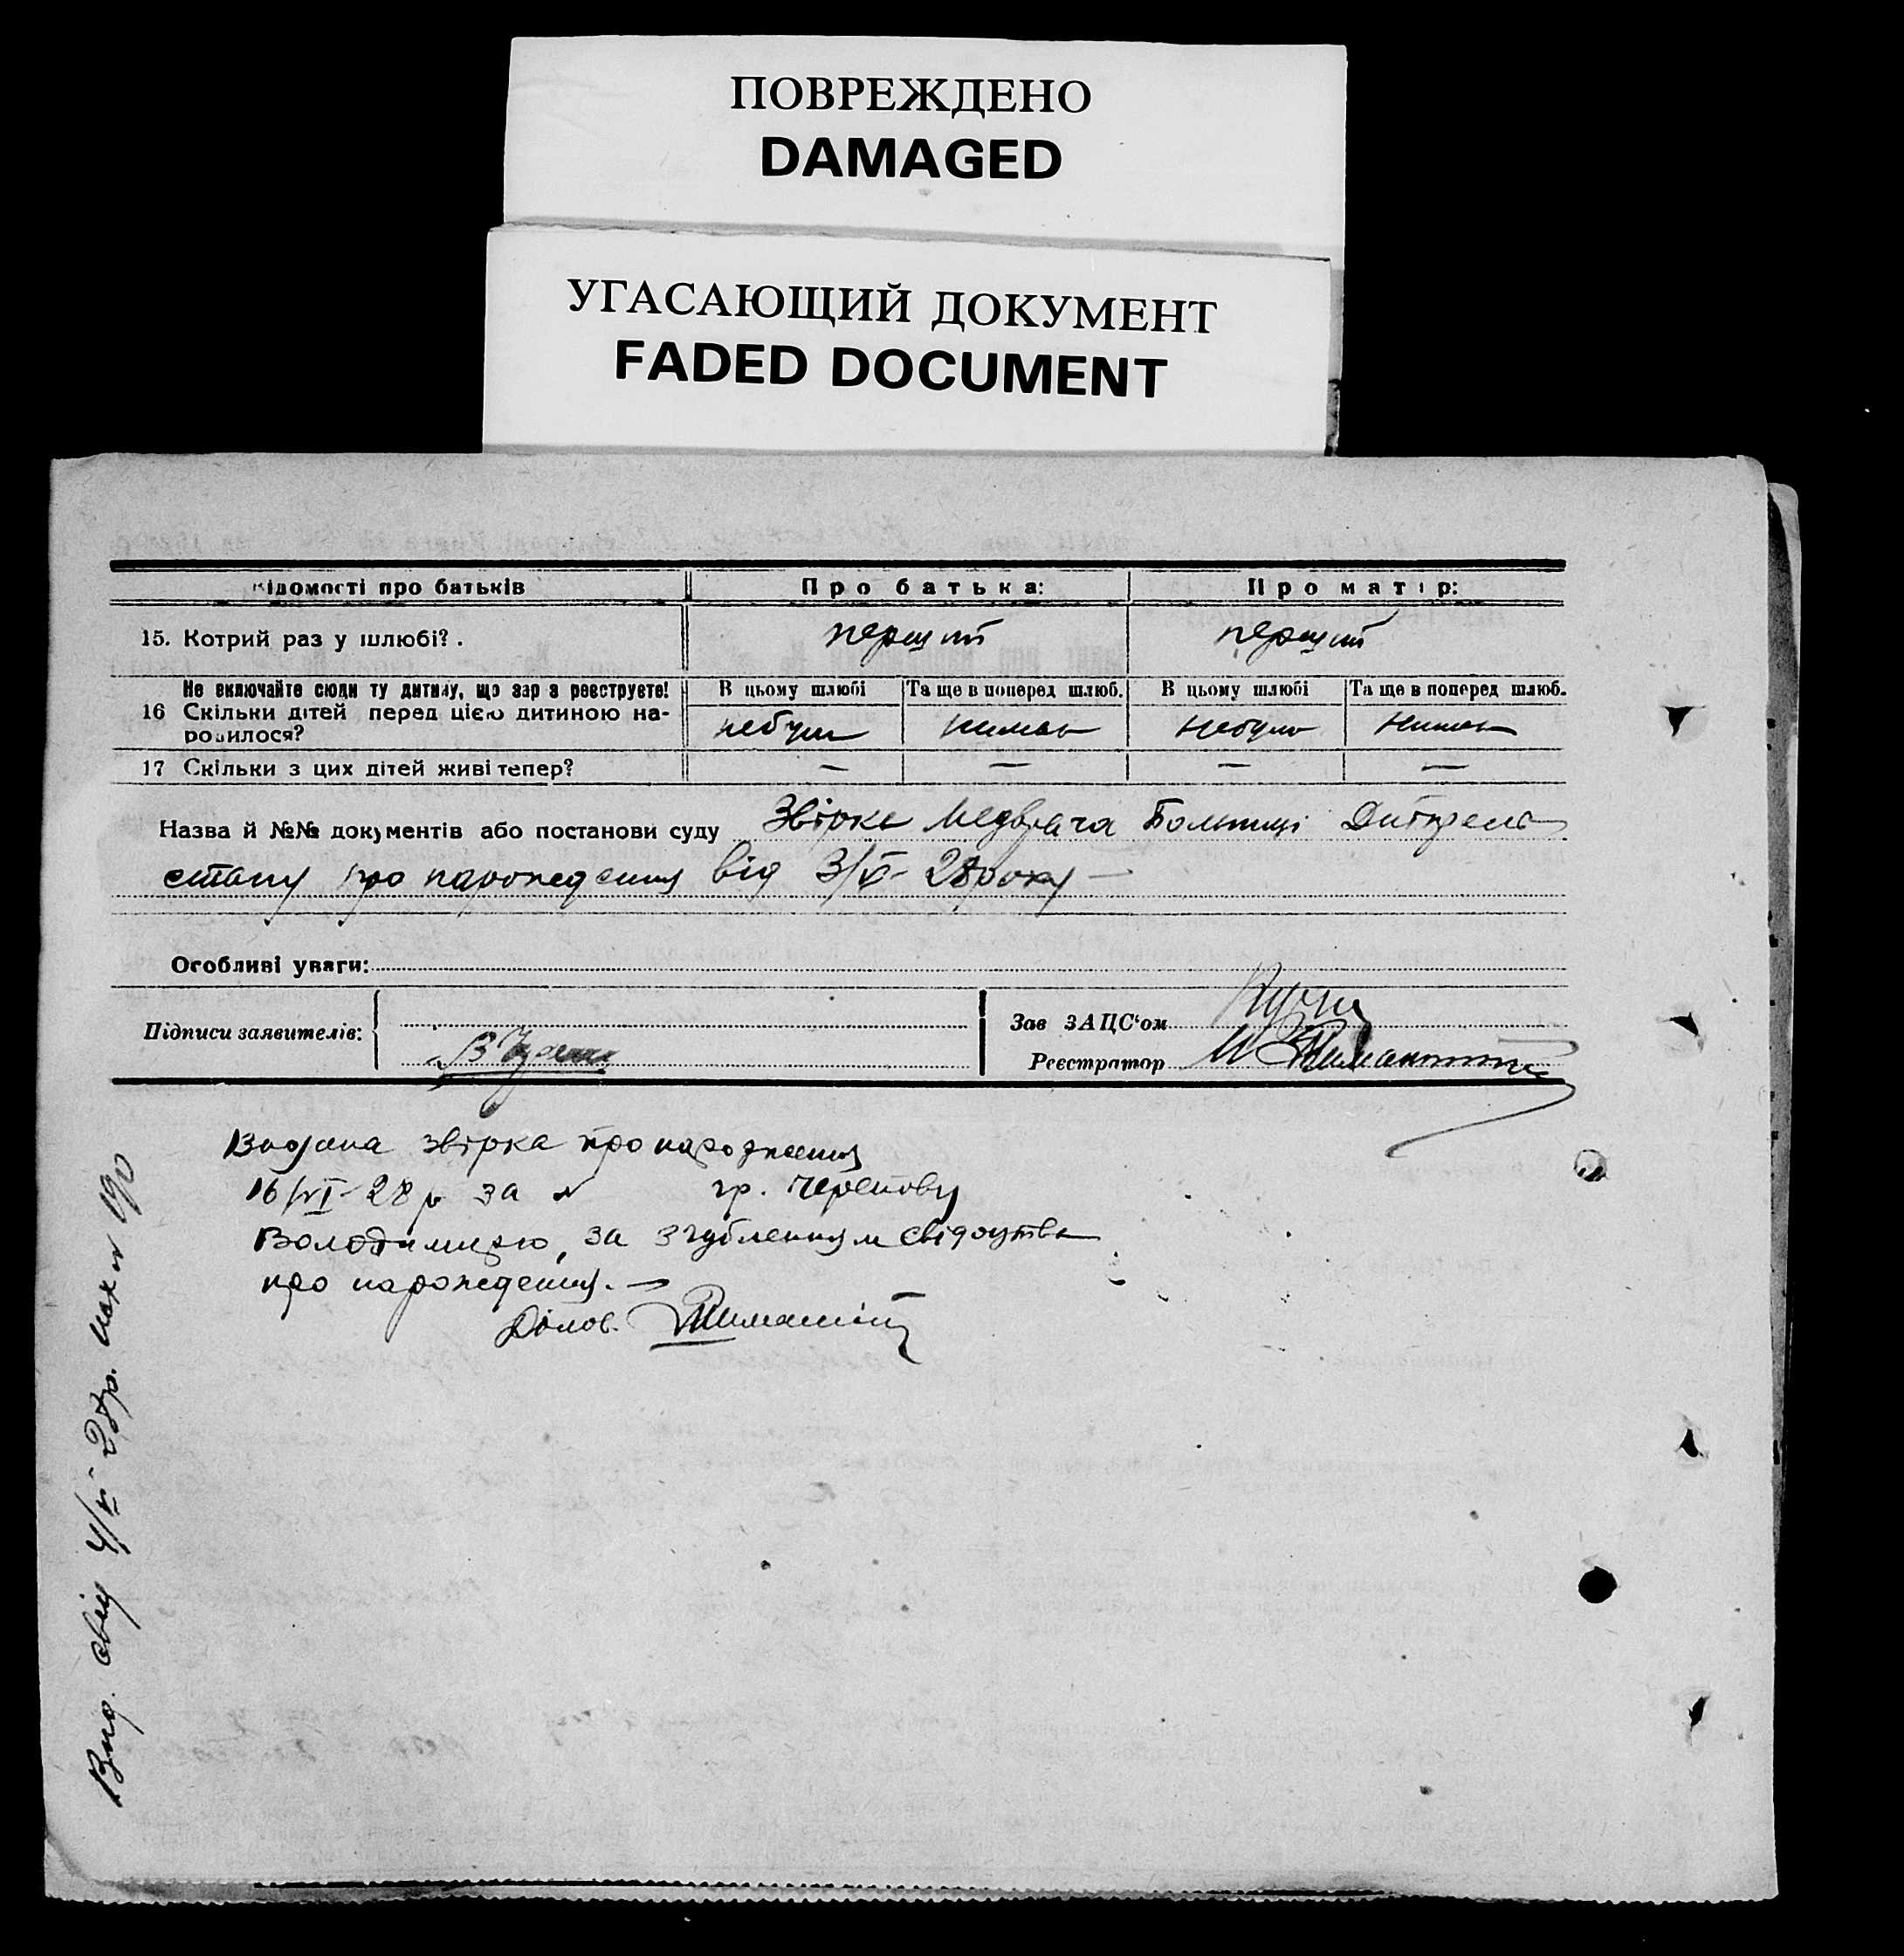 ПОВРЕЖДЕНО
DAMAGED
УГАСАЮЩИЙ ДОКУМЕНТ
FADED DOCUMENT
відомості про батьків Про батька: Про матір:
15. Котрий раз у шлюбі?. перший перший
Не включайте сюди ту дитину, що зараз реєструєте! В цьому шлюбі Та ще в поперед шлюб. В цьому шлюбі Та ще в поперед шлюб.
16 Скільки дітей перед цією дитиною на-
родилося? небули нимає небуло нимає
17 Скільки з цих дітей живі тепер? — — — —
Назва й №№ документів або постанови суду Звірка Медврача Больниці
стану про народження від 3/V- 28 року —
Особливі уваги:
Підписи заявителів:
Зав ЗАЦС'ом
Реєстратор
Видана звірка про народження
16/VI-28 р за № гр. Черепову
Володимиру, за згубленням свідоцтва
про народження. —
Ділов.
Вид. свід 4/VI-28р. №190